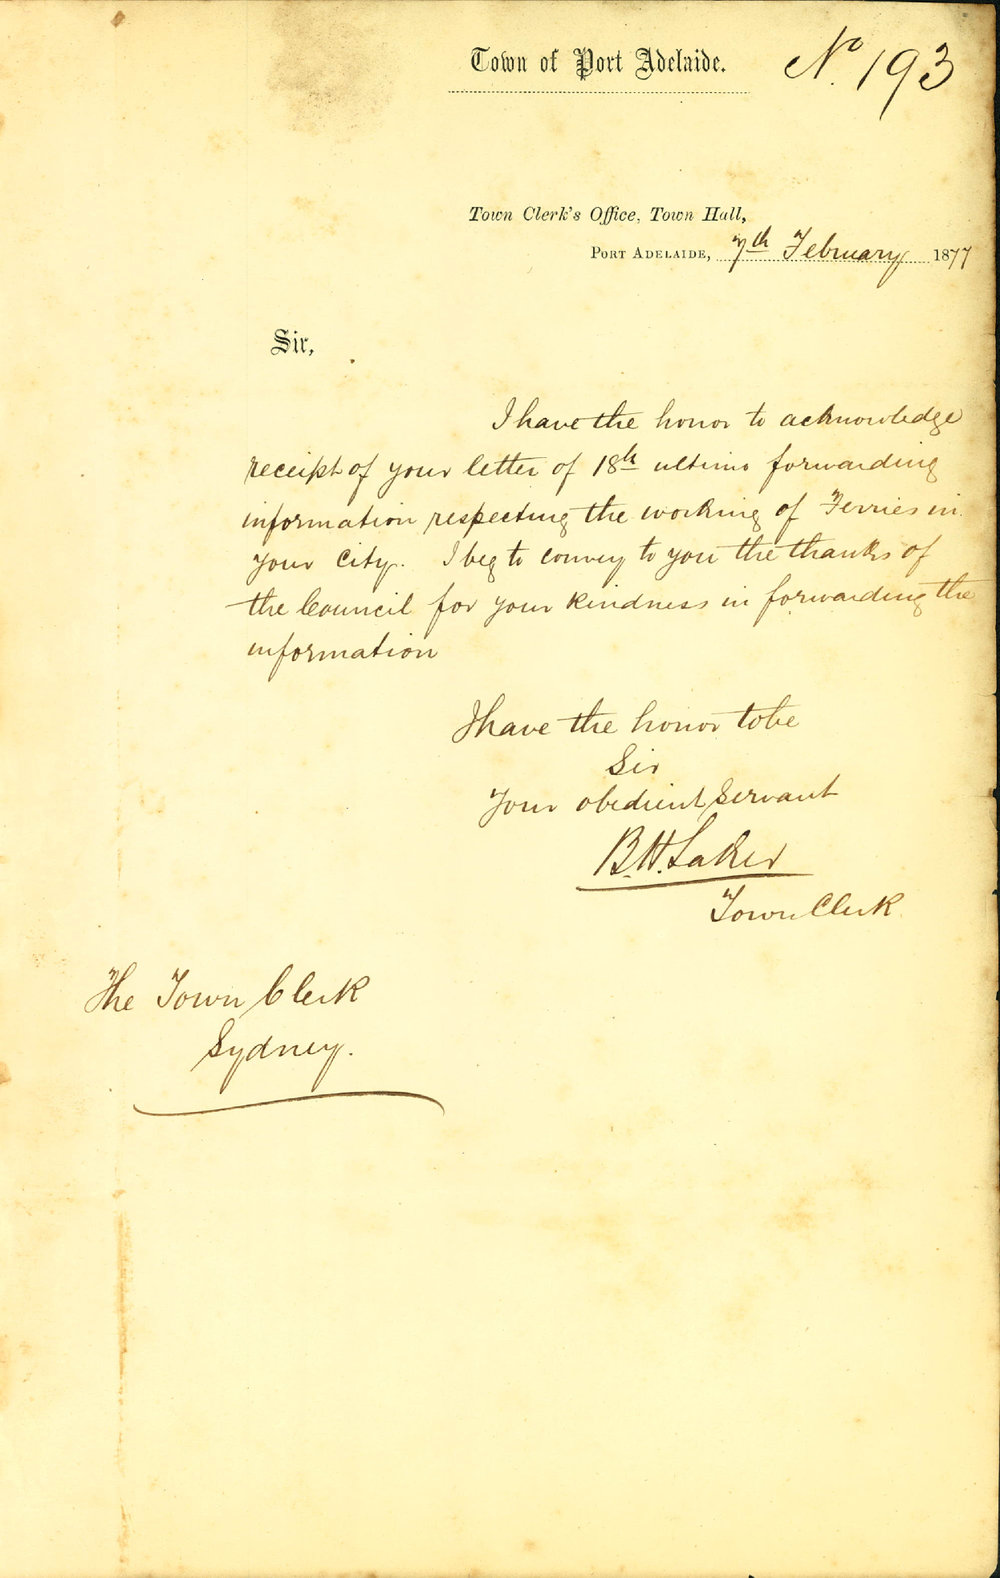 Town of Port Adelaide.
No. 193
Town Clerk's Office, Town Hall,
PORT ADELAIDE, 7th February 1877
Sir,
I have the honor to acknowledge
receipt of your letter of 18th ultimo forwarding
information respecting the working of Ferries in
your City. I beg to convey to you the thanks of
the Council for your kindness in forwarding the
information
I have the honor to be
Sir
Your obedient Servant
B.H. Laker
Town Clerk
The Town Clerk
Sydney.